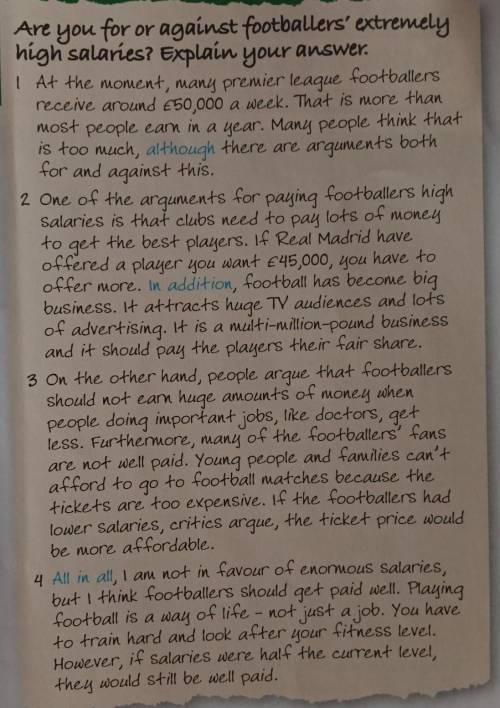 Are you for or against footballers' extremely
high salaries? Explain your answer.
1 At the moment, many premier league footballers
receive around £50,000 a week. That is more than
most people earn in a year. Many people think that
is too much, although there are arguments both
for and against this.
2 One of the arguments for paying footballers high
salaries is that clubs need to pay lots of money
to get the best players. If Real Madrid have
offered a player you want £45,000, you have to
offer more. In addition, football has become big
business. It attracts huge TV audiences and lots
of advertising. It is a multi-million-pound business
and it should pay the players their fair share.
3 On the other hand, people argue that footballers
should not earn huge amounts of money when
people doing important jobs, like doctors, get
less. Furthermore, many of the footballers' fans
are not well paid. Young people and families can't
afford to go to football matches because the
tickets are too expensive. If the footballers had
lower salaries, critics argue, the ticket price would
be more affordable.
4 All in all, I am not in favour of enormous salaries,
but I think footballers should get paid well. Playing
football is a way of life - not just a job. You have
to train hard and look after your fitness level.
However, if salaries were half the current level,
they would still be well paid.